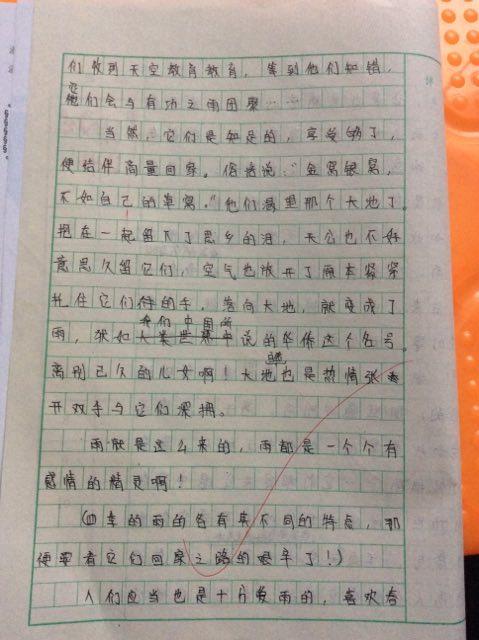 们收到天空教育教育，等到他们知错，
它们会与有功之雨团聚……
当然，它们是知足的，享受够了，
便结伴商量回家。俗话说："金窝银窝，
不如自己的草窝。"他们漫里那个大地了
抱在一起留下了思乡的泪，天公也不好
意思久留它们，空气也放开了原本紧紧
扎住它们的手，落向大地，就变成了
雨，犹如我们中国所说的华侨这个名号
离别已久的儿女啊！大地也是热情张
开双手与它们深拥。
雨就是这么来的，雨都是一个个有
感情的精灵啊！
（四季的雨的各有其不同的特点，那
便要看它们回家之路的艰辛了！）
人们应当也是十分爱雨的，喜欢春